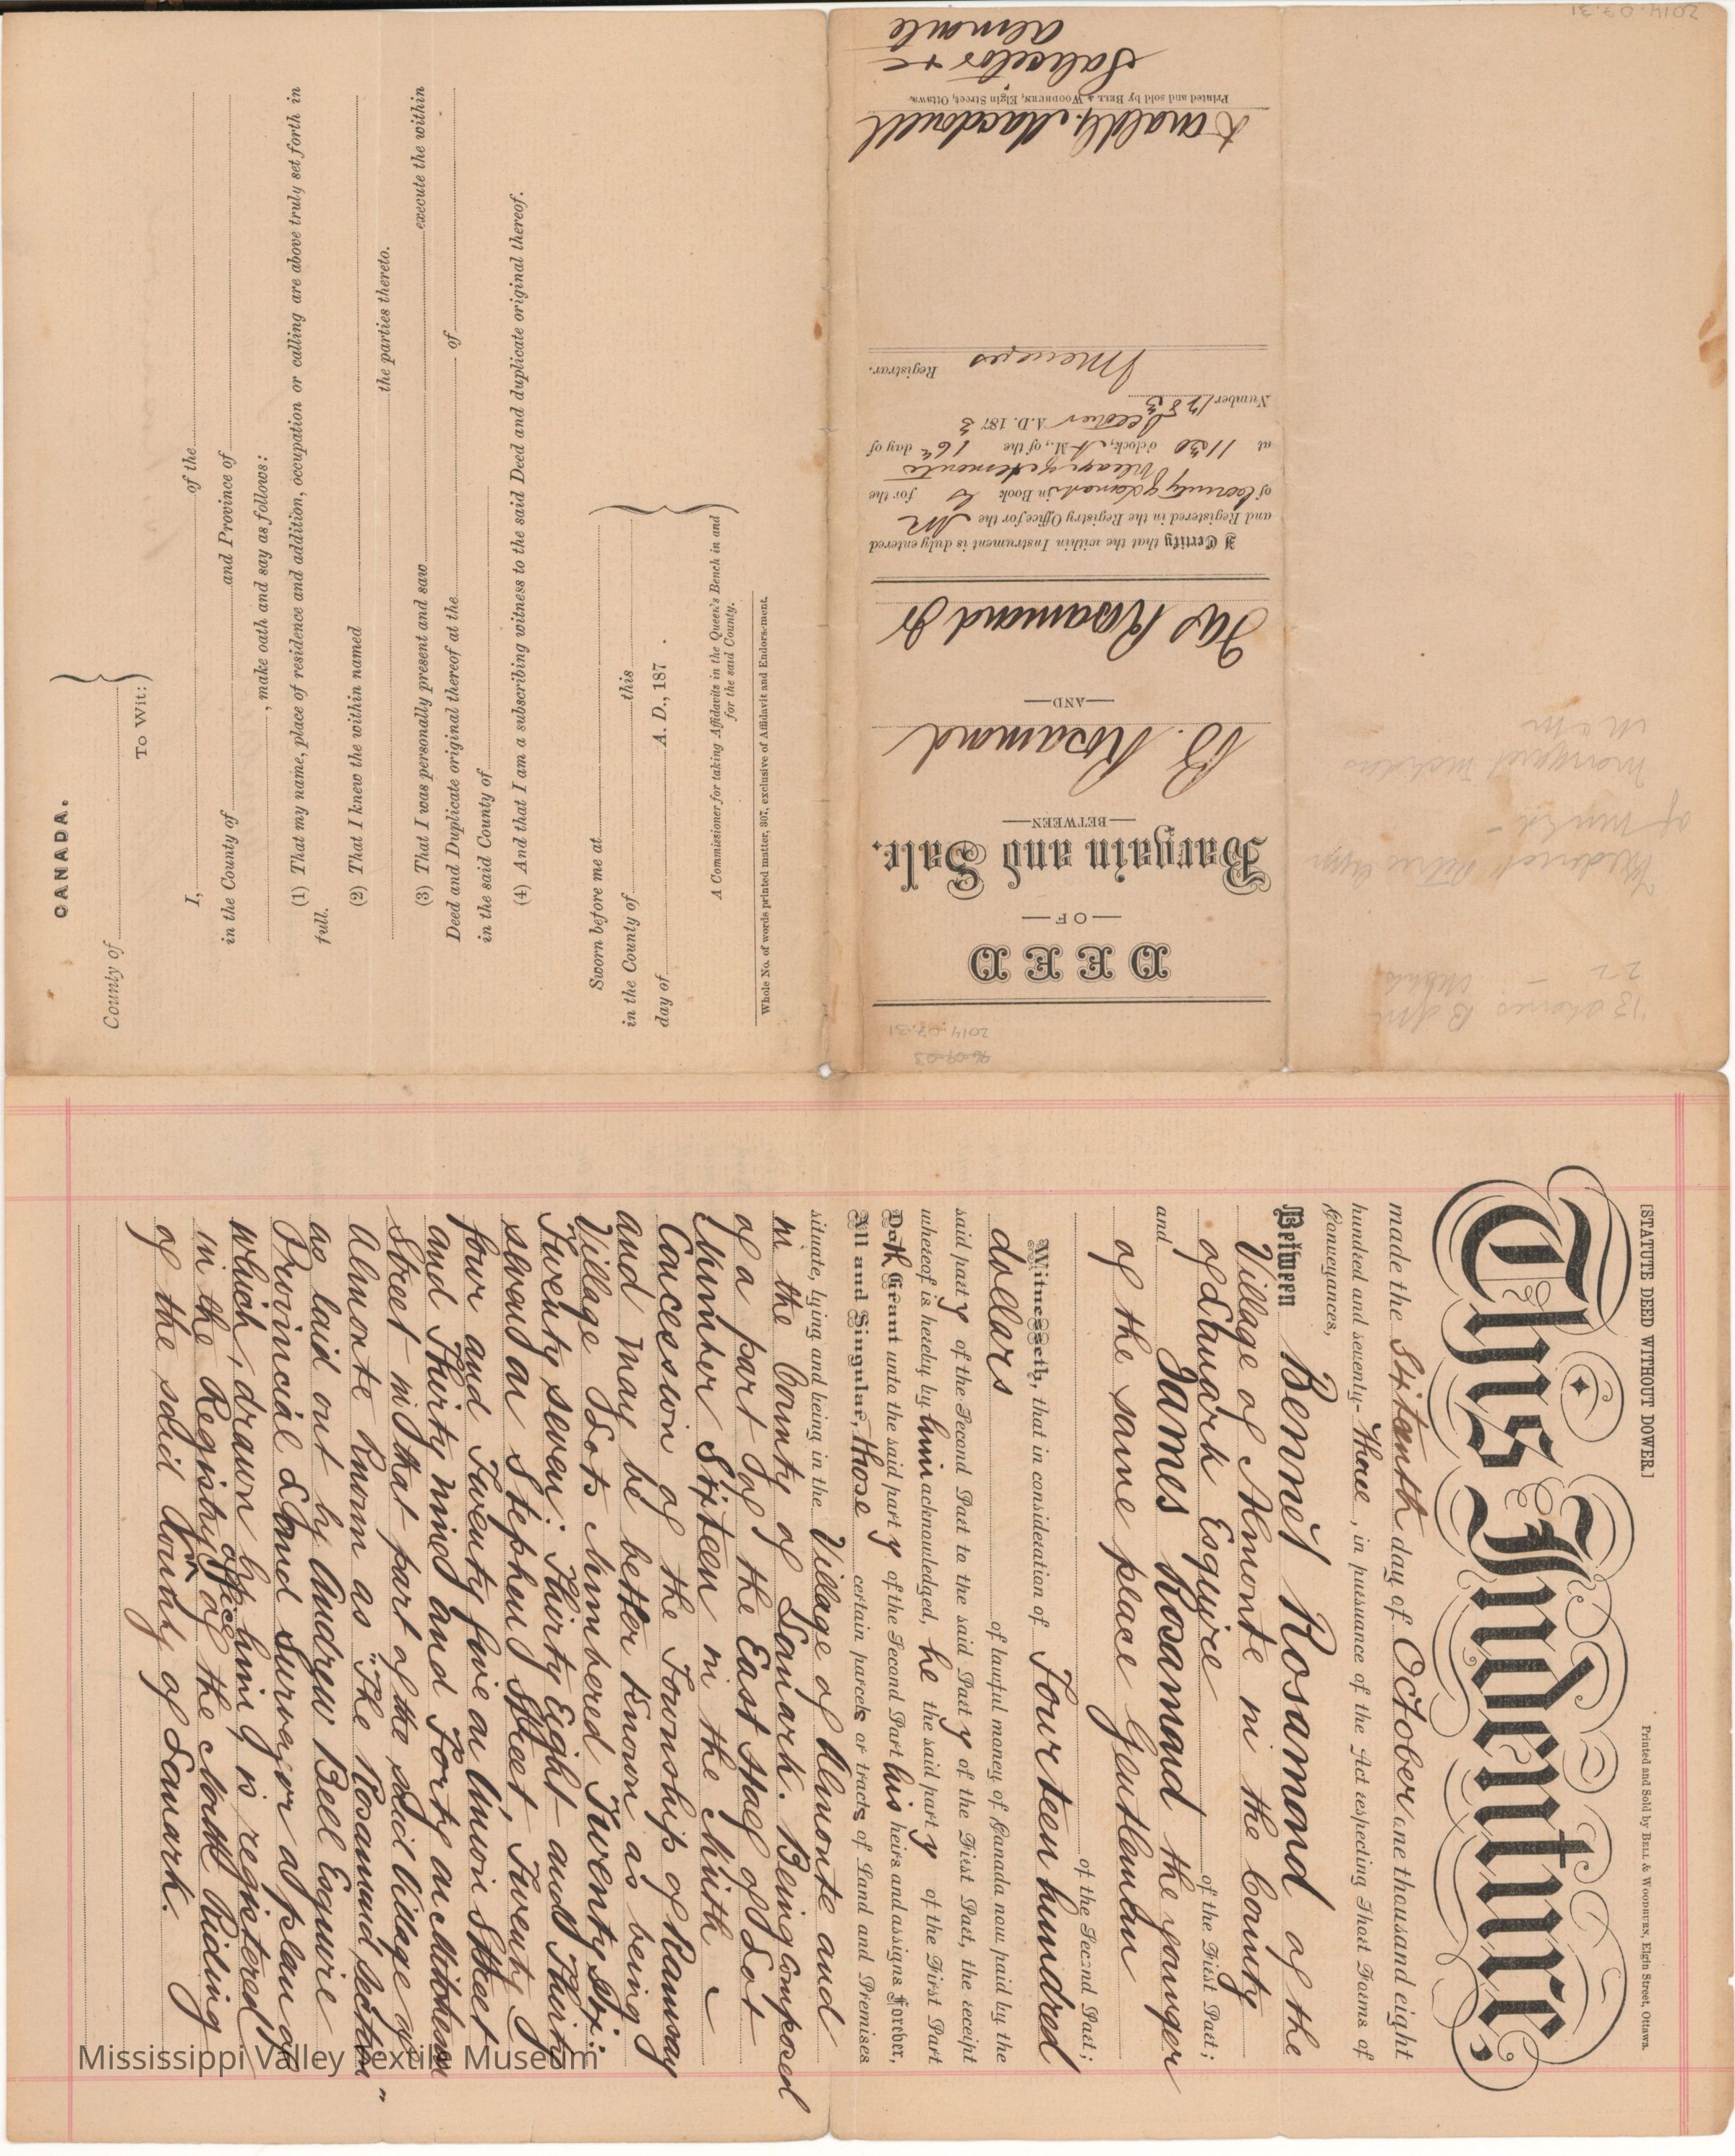 [STATUTE DEED WITHOUT DOWER.] Printed and Sold by BELL & WOODBURN, Elgin Street, Ottawa.
This Indenture,
made the Sixteenth day of October one thousand eight
hundred and seventy-Three, in pursuance of the Act respecting Short Forms of
Conveyances,
Between Bennet Rosamond of the
Village of Almonte in the County
of Lanark Esquire of the First Part;
and James Rosamond the younger
of the same place Gentleman
of the Second Part;
Witnesseth, that in consideration of Fourteen hundred
dollars of lawful money of Canada now paid by the
said party of the Second Part to the said Party of the First Part, the receipt
whereof is hereby by him acknowledged, he the said party of the First Part
Doth Grant unto the said party of the Second Part his heirs and assigns Forever,
All and Singular, those certain parcels or tracts of Land and Premises
situate, lying and being in the Village of Almonte and
in the County of Lanark. Being composed
of a part of the East Half of Lot
Number Sixteen in the Ninth
Concession of the Township of Ramsay
and may be better known as being
Village Lots Numbered Twenty six:
Twenty seven: Thirty Eight and Thirty
seven on Stephen Street, Twenty
four and Twenty five on Union Street
and Thirty nine and Forty on
Street in that part of the said Village of
Almonte known as "The Rosamond section"
as laid out by Andrew Bell Esquire
Provincial Land Surveyor a plan of
which, drawn by him is registered
in the Registry office of the North Riding
of the said County of Lanark.
DEED
—OF—
Bargain and Sale.
—BETWEEN—
B. Rosamond
—AND—
Jas Rosamond Jr
I Certify that the within Instrument is duly entered
and Registered in the Registry Office for the
of County of Lanark in Book for the
Village of Almonte
at 11 30 o'clock, A M., of the 16 day of
October A.D. 187 3
Number 1283
Registrar.
Macdonell
Printed and sold by BELL & WOODBURN, Elgin Street, Ottawa.
Solicitor &c
Almonte
96-09-03
2014.07.31
2014.07.31
CANADA.
County of
To Wit:
I, of the
in the County of and Province of
, make oath and say as follows:
(1) That my name, place of residence and addition, occupation or calling are above truly set forth in
full.
(2) That I knew the within named
the parties thereto.
(3) That I was personally present and saw execute the within
Deed and Duplicate original thereof at the of
in the said County of
(4) And that I am a subscribing witness to the said Deed and duplicate original thereof.
Sworn before me at
in the County of this
day of A. D., 187 .
A Commissioner for taking Affidavits in the Queen's Bench in and
for the said County.
Whole No. of words printed matter, 307, exclusive of Affidavit and Endorsement.
Mississippi Valley Textile Museum